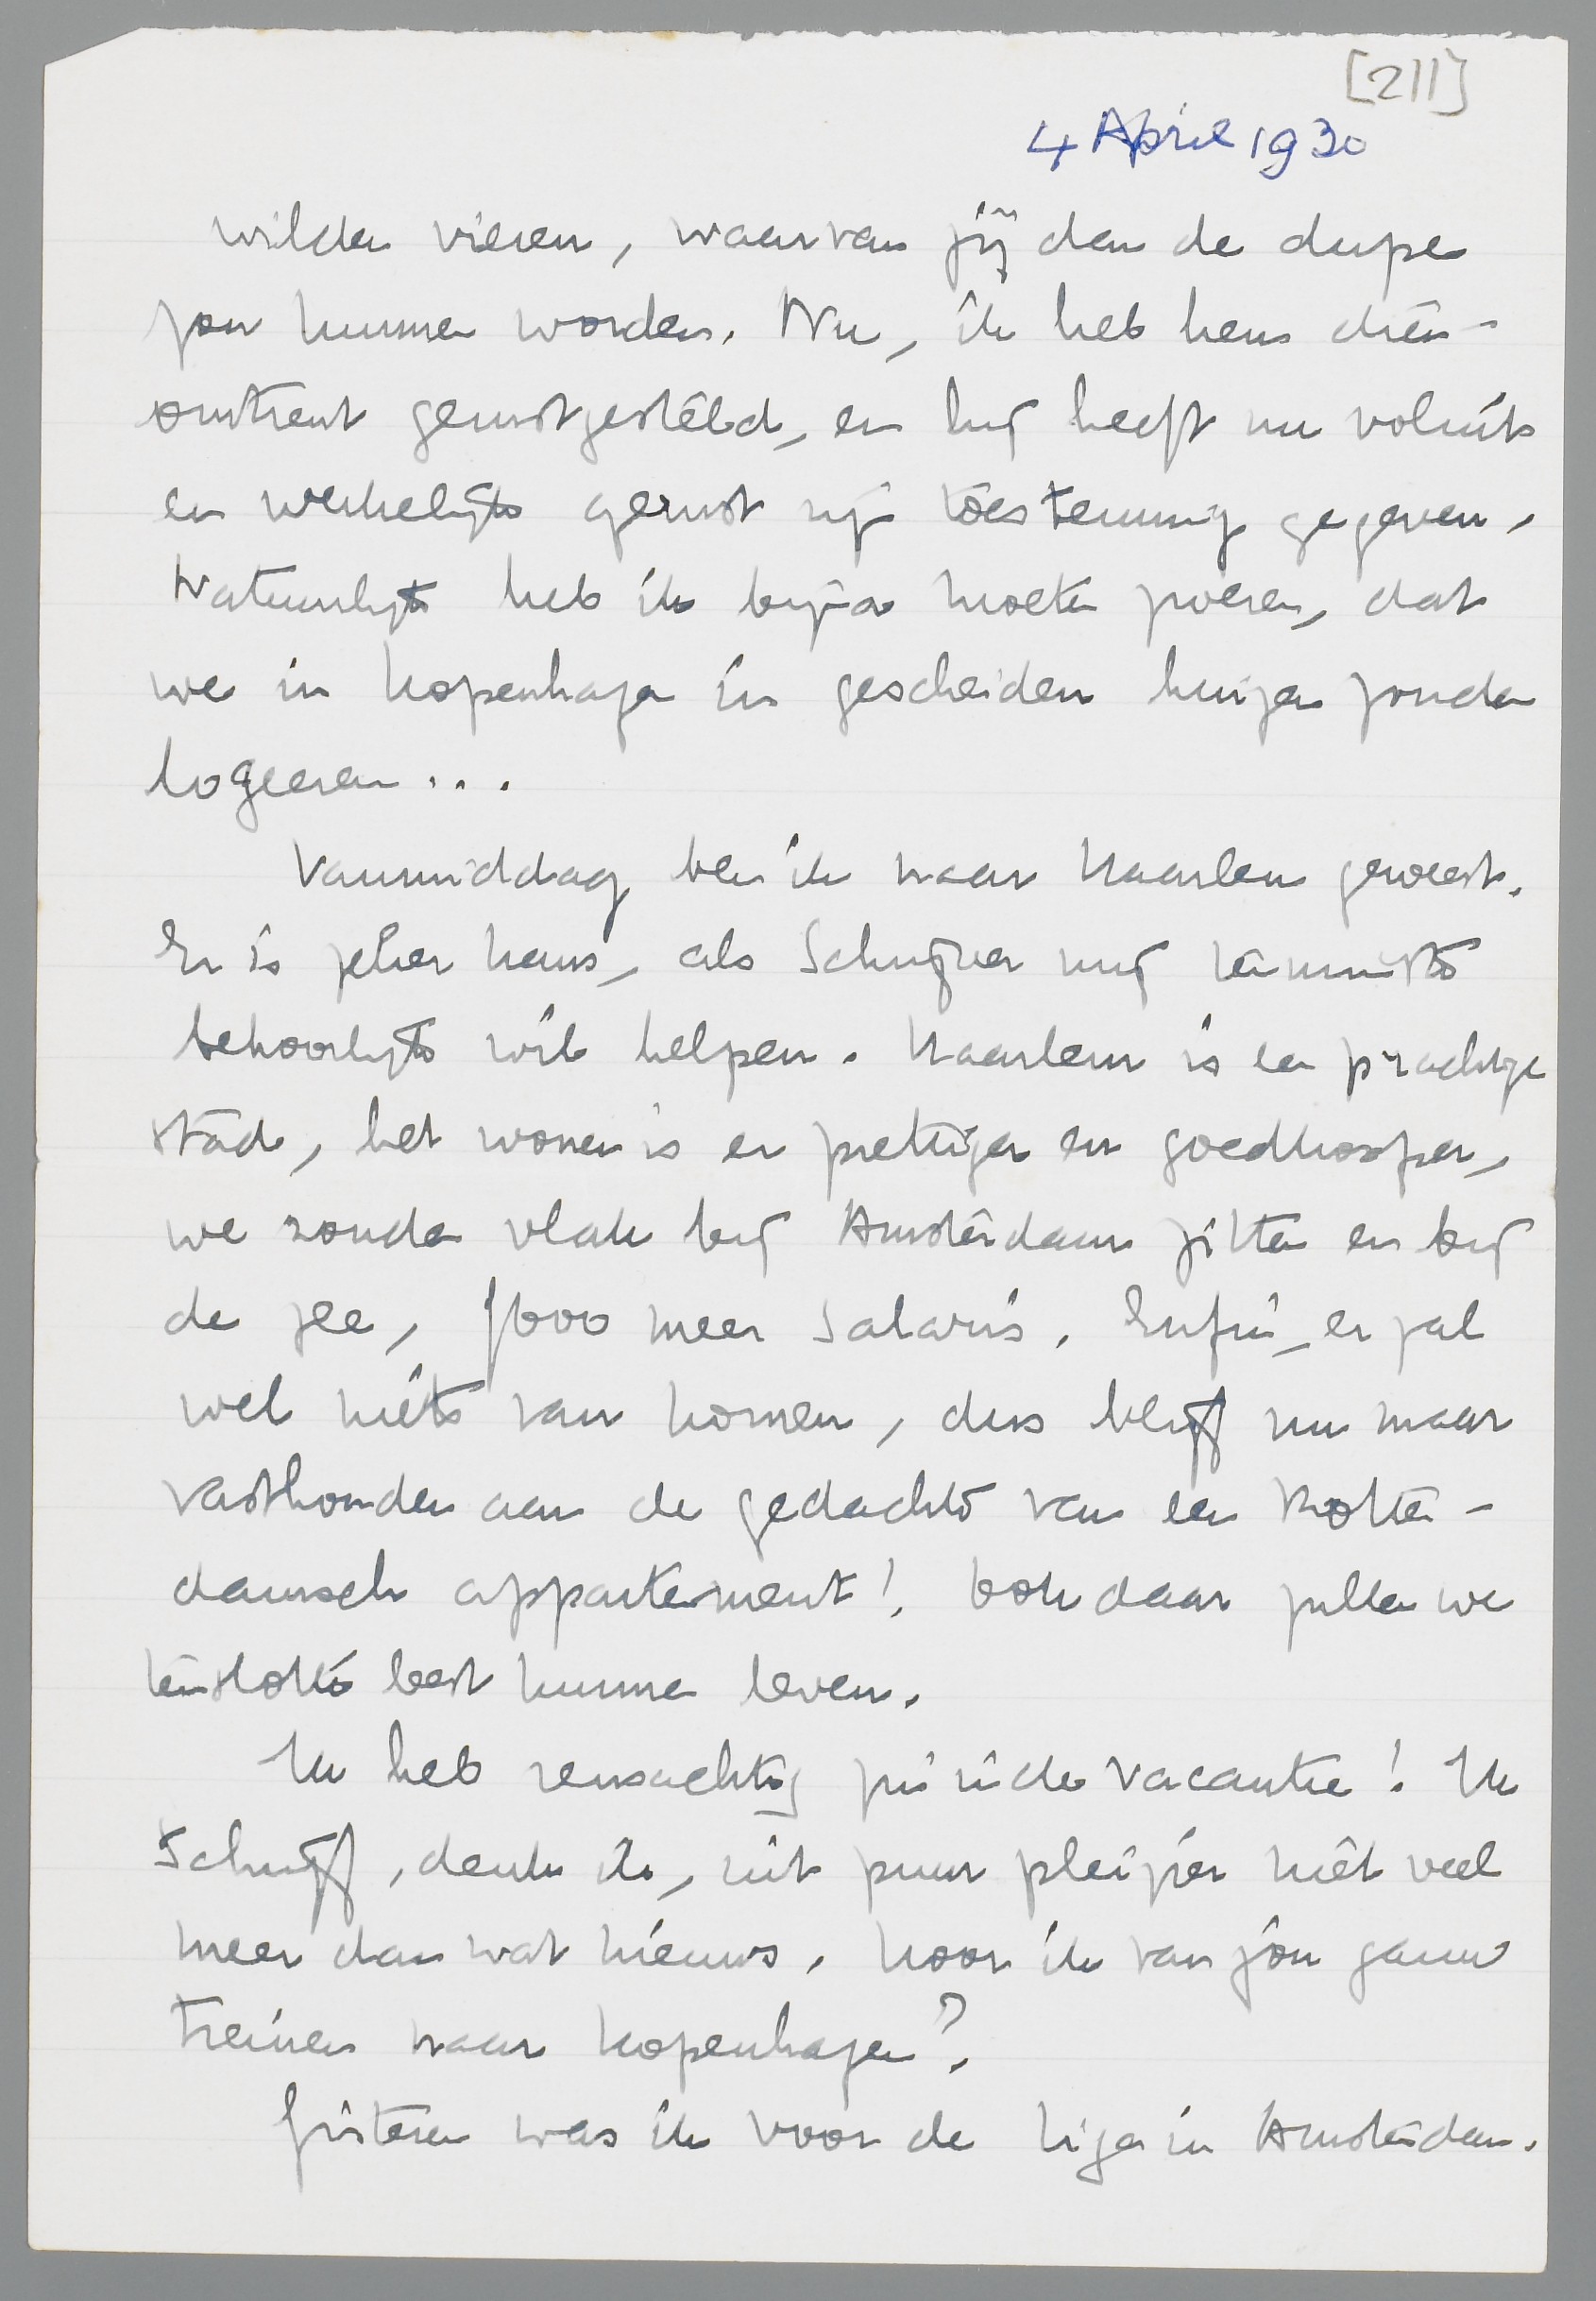 [211]
4 April 1930
wilden vieren, waarvan jij dan de dupe
zou kunnen worden. Nu, ik heb hem dien-
omtrent gerustgesteld, en hij heeft nu voluit
en werkelijk gerust zijn toestemming gegeven.
Natuurlijk heb ik bijna moeten zweren, dat
we in Kopenhagen in gescheiden huizen zouden
logeeren...
Vanmiddag ben ik naar Haarlem geweest.
Er is zeker kans, als Schrijver mij tenminste
behoorlijk wil helpen. Haarlem is een prachtige
stad, het wonen is er prettiger en goedkooper,
we zouden vlak bij Amsterdam zitten en bij
de zee, f600 meer salaris. Enfin, er zal
wel niets van komen, dus blijf nu maar
vasthouden aan de gedachte van een Rotter-
damsch appartement! Ook daar zullen we
tenslotte best kunnen leven.
Ik heb reusachtig zin in de vacantie! Ik
schrijf, denk ik, uit puur pleizier niet veel
meer dan wat nieuws. Hoor ik van jou gauw
treinen naar Kopenhagen?
Gisteren was ik voor de Liga in Amsterdam.